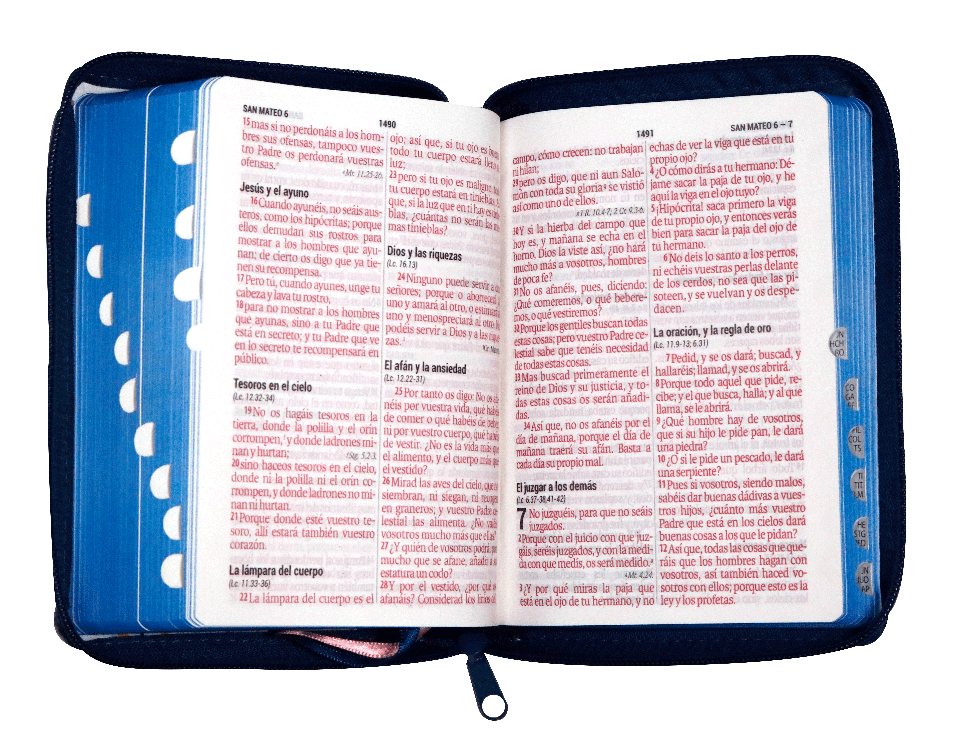 SAN MATEO 6
1490
15mas si no perdonáis a los hom-
bres sus ofensas, tampoco vues-
tro Padre os perdonará vuestras
ofensas.
Mr. 11.25-26.
Jesús y el ayuno
16Cuando ayunéis, no seáis aus-
teros, como los hipócritas; porque
ellos demudan sus rostros para
mostrar a los hombres que ayu-
nan; de cierto os digo que ya tie-
nen su recompensa.
17Pero tú, cuando ayunes, unge tu
cabeza y lava tu rostro,
18para no mostrar a los hombres
que ayunas, sino a tu Padre que
está en secreto; y tu Padre que ve
en lo secreto te recompensará en
público.
Tesoros en el cielo
(Lc. 12.32-34)
19No os hagáis tesoros en la
tierra, donde la polilla y el orín
corrompen, y donde ladrones mi-
nan y hurtan;
Stg. 5.2-3.
20sino haceos tesoros en el cielo,
donde ni la polilla ni el orín co-
rrompen, y donde ladrones no mi-
nan ni hurtan.
21Porque donde esté vuestro te-
soro, allí estará también vuestro
corazón.
La lámpara del cuerpo
(Lc. 11.33-36)
22La lámpara del cuerpo es el
ojo; así que, si tu ojo es
todo tu cuerpo estará
luz;
23pero si tu ojo es maligno,
tu cuerpo estará en
que, si la luz que en ti hay es
blas, ¿cuántas no serán las
mas tinieblas?
Dios y las riquezas
(Lc. 16.13)
24Ninguno puede servir a
señores; porque o aborrecerá
uno y amará al otro, o estimará
uno y menospreciará al otro. No
podéis servir a Dios y a las
zas.
El afán y la ansiedad
(Lc. 12.22-31)
25Por tanto os digo: No os
néis por vuestra vida, qué
de comer o qué habéis de
ni por vuestro cuerpo, qué
de vestir. ¿No es la vida más
el alimento, y el cuerpo más
el vestido?
26Mirad las aves del cielo, que
siembran, ni siegan, ni
en graneros; y vuestro Padre
lestial las alimenta. ¿No
vosotros mucho más que
27¿Y quién de vosotros podrá,
mucho que se afane, añadir a
estatura un codo?
28Y por el vestido, ¿por qué
afanáis? Considerad los lirios
1491
SAN MATEO 6 – 7
campo, cómo crecen: no trabajan
ni hilan;
29pero os digo, que ni aun Salo-
món con toda su gloria se vistió
así como uno de ellos.
1 R. 10.4-7; 2 Cr. 9.3-6.
30Y si la hierba del campo que
hoy es, y mañana se echa en el
horno, Dios la viste así, ¿no hará
mucho más a vosotros, hombres
de poca fe?
31No os afanéis, pues, diciendo:
¿Qué comeremos, o qué bebere-
mos, o qué vestiremos?
32Porque los gentiles buscan todas
estas cosas; pero vuestro Padre ce-
lestial sabe que tenéis necesidad
de todas estas cosas.
33Mas buscad primeramente el
reino de Dios y su justicia, y to-
das estas cosas os serán añadi-
das.
34Así que, no os afanéis por el
día de mañana, porque el día de
mañana traerá su afán. Basta a
cada día su propio mal.
El juzgar a los demás
(Lc. 6.37-38,41-42)
7 No juzguéis, para que no seáis
juzgados.
2Porque con el juicio con que juz-
gáis, seréis juzgados, y con la medi-
da con que medís, os será medido.
Mr. 4.24.
3¿Y por qué miras la paja que
está en el ojo de tu hermano, y no
echas de ver la viga que está en tu
propio ojo?
4¿O cómo dirás a tu hermano: Dé-
jame sacar la paja de tu ojo, y he
aquí la viga en el ojo tuyo?
5¡Hipócrita! saca primero la viga
de tu propio ojo, y entonces verás
bien para sacar la paja del ojo de
tu hermano.
6No deis lo santo a los perros,
ni echéis vuestras perlas delante
de los cerdos, no sea que las pi-
soteen, y se vuelvan y os despe-
dacen.
La oración, y la regla de oro
(Lc. 11.9-13; 6.31)
7Pedid, y se os dará; buscad, y
hallaréis; llamad, y se os abrirá.
8Porque todo aquel que pide, re-
cibe; y el que busca, halla; y al que
llama, se le abrirá.
9¿Qué hombre hay de vosotros,
que si su hijo le pide pan, le dará
una piedra?
10¿O si le pide un pescado, le dará
una serpiente?
11Pues si vosotros, siendo malos,
sabéis dar buenas dádivas a vues-
tros hijos, ¿cuánto más vuestro
Padre que está en los cielos dará
buenas cosas a los que le pidan?
12Así que, todas las cosas que que-
ráis que los hombres hagan con
vosotros, así también haced vo-
sotros con ellos; porque esto es la
ley y los profetas.